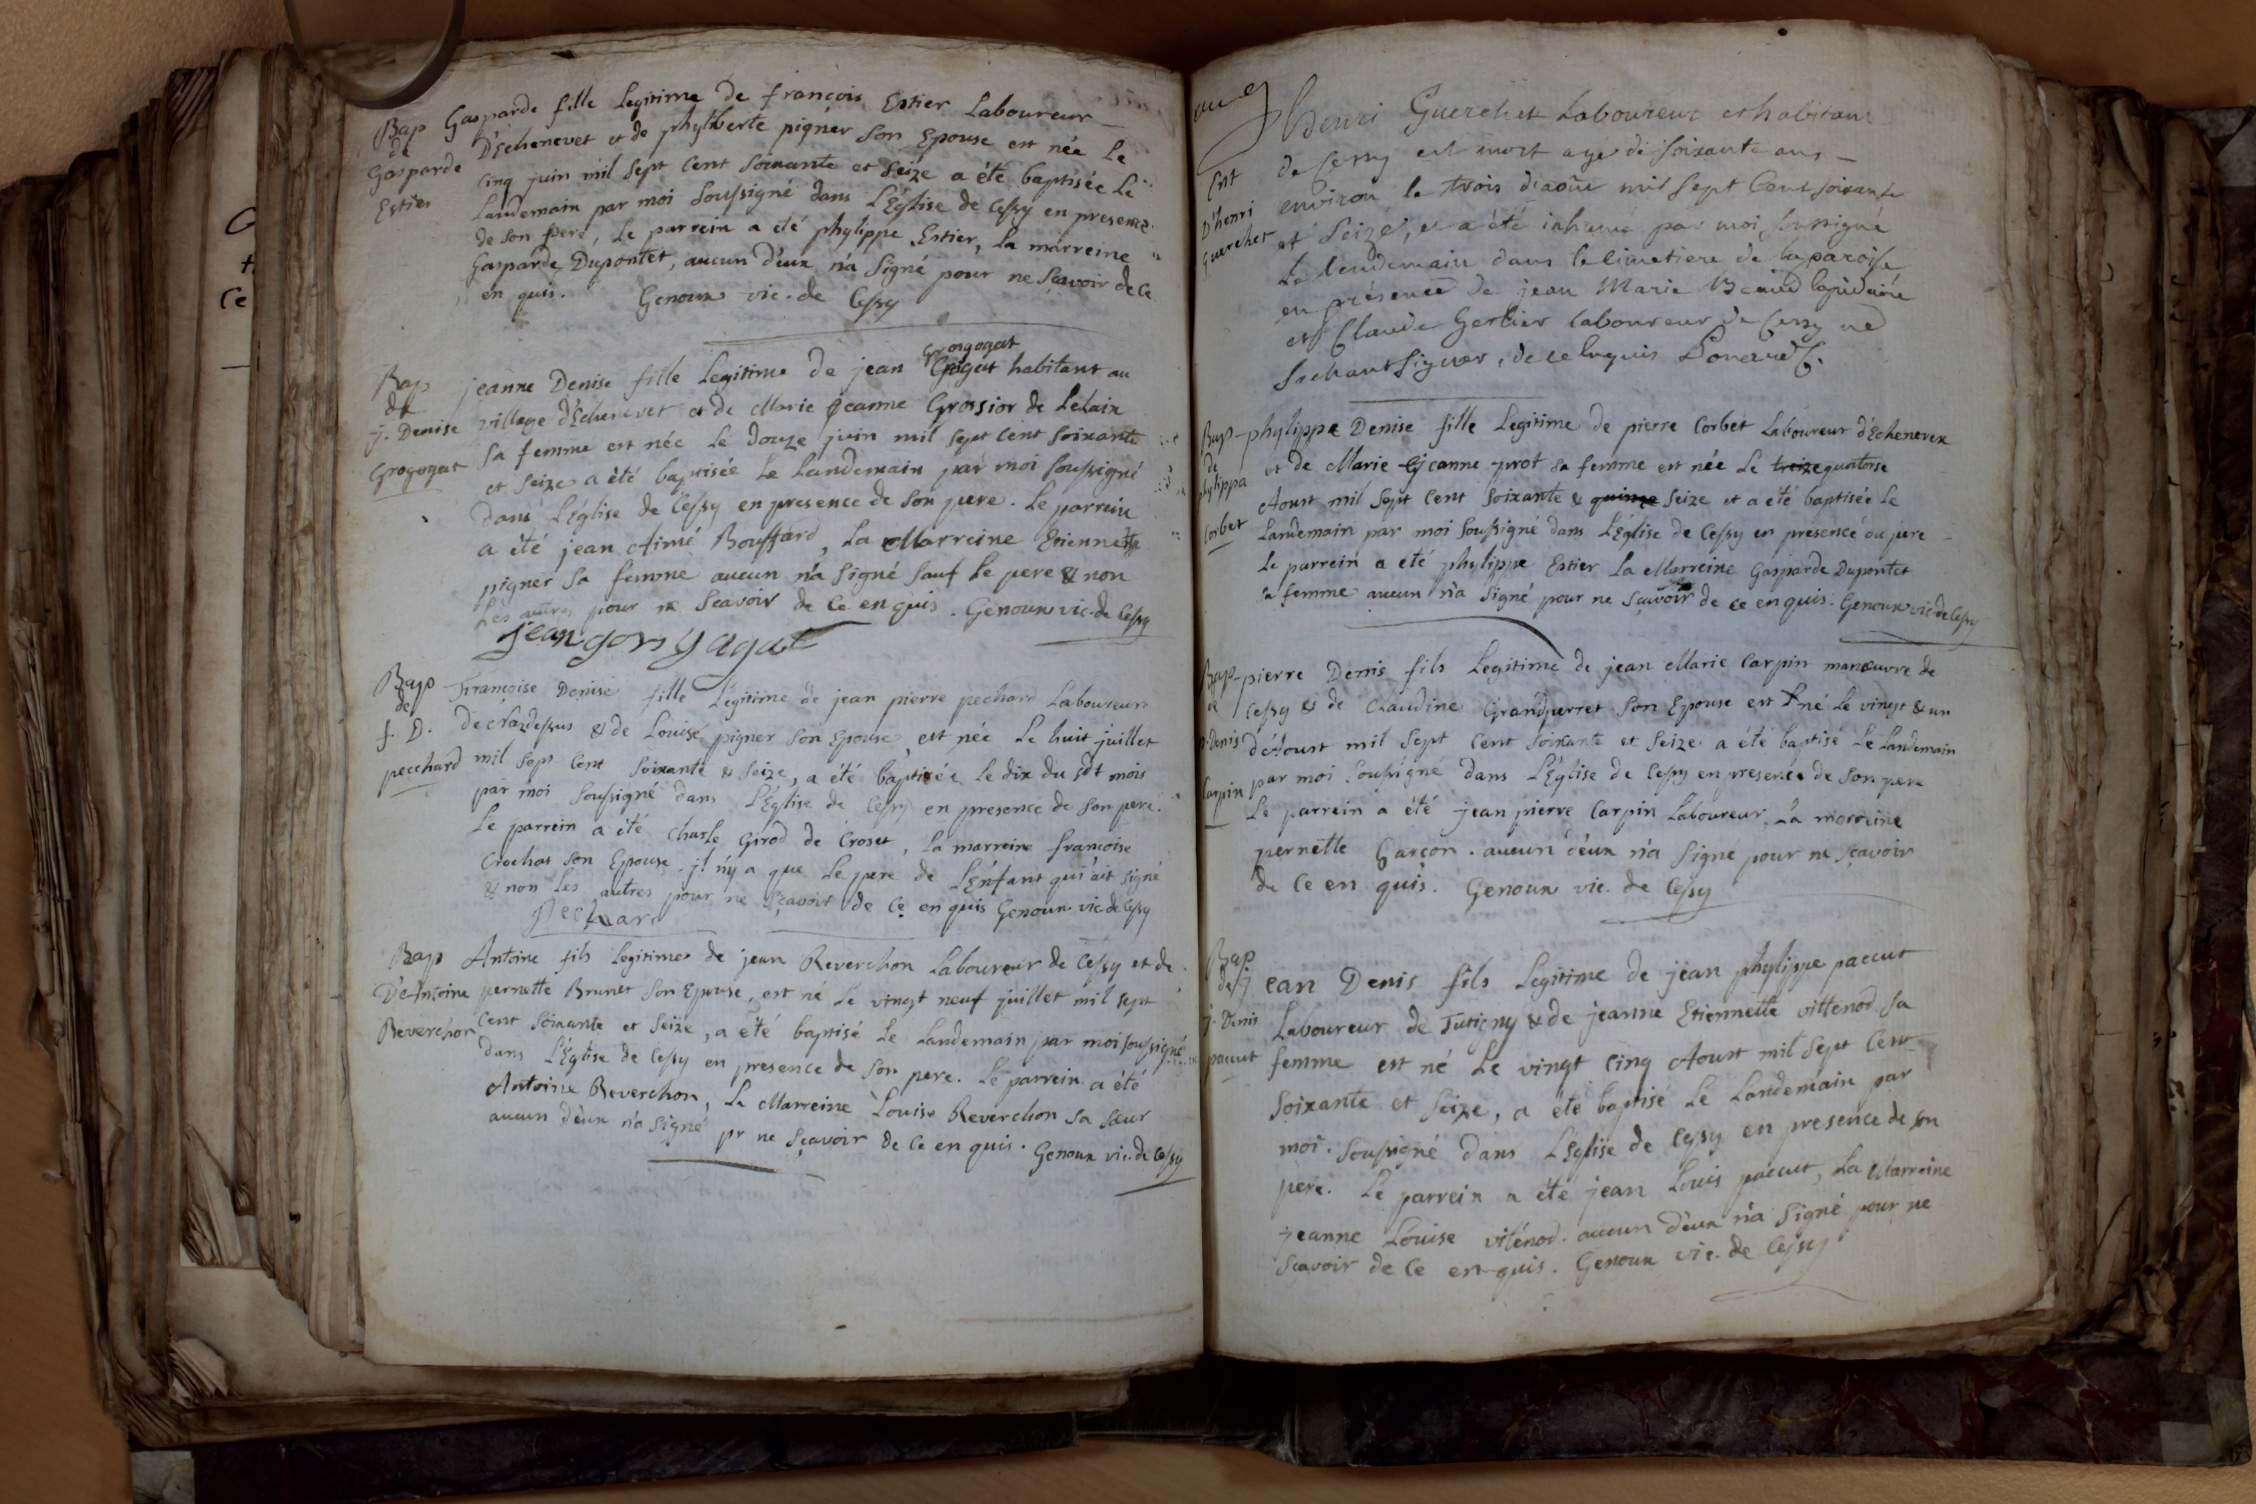 Bap
de
Gasparde
Estier
Gasparde fille Legitime de françois Estier Laboureur
D'Echenevet et de phyliberte pigner son Epouse est née le
cinq juin mil sept cent soixante et seize a été baptisée le
Landemain par moi soussigné dans L'Église de Cessy en presence
de son pere, Le parrein a été phylippe Estier, La marreine
Gasparde Dupontet, aucun d'eux n'a signé pour ne sçavoir de ce
en quis. Genoux vic. de Cessy
Bap
de
j. Denise
Grogogat
Grogogat
jeanne Denise fille Legitime de jean habitant au
village d'Echenevet et de Marie jeanne Grossior de Lelain
sa femme est née Le douze juin mil sept cent soixante
et seize a été baptisée Le Landemain par moi soussigné
dans L'église de Cessy en presence de son pere. Le parrein
a été jean Aimé Bouffard, La Marreine Etiennette
pigner sa femme aucun n'a signé sauf Le pere & non
Les autres pour ne sçavoir de ce en quis. Genoux vic. de Cessy
jean gorgagat
Bap
de
f. D.
pecchard
françoise Denise fille Légitime de jean pierre pechard Laboureur
de & de Louise pigner son epouse, est née Le huit juillet
mil sept cent soixante & seize, a été baptisée Le dix du sdt mois
par moi soussigné dans L'Église de Cessy en presence de son pere.
Le parrein a été Charle Girod de Croset, La marreine françoise
Crochat son Epouse. jl n'y a que Le pere de L'Enfant qui ait signé
& non Les autres pour ne sçavoir de ce en quis Genoux vic. de Cessy
Pechard
Bap
D'Antoine
Reverchon
Antoine fils Legitime de jean Reverchon Laboureur de Cessy et de
pernette Brunet son Epouse, est né Le vingt neuf juillet mil sept
cent soixante et seize, a été baptisé Le Landemain par moi soussigné
dans L'Église de Cessy en presence de son pere. Le parrein a été
Antoine Reverchon, La Marreine Louise Reverchon sa sœur
aucun d'eux n'a signé pr ne sçavoir de ce en quis. Genoux vic. de Cessy
Ent
D'henri
Guerchet
henri Guerchet Laboureur et habitant
de Cessy est mort age de soixante ans
environ le trois d'août mil sept Cent soixante
et seize, et a été inhumé par moi soussigné
Le lendemain dans le cimetiere de la paroisse
en présence de jean Marie lapidaire
et Claude Gerlier laboureur de Cessy ne
sachant signer, de ce enquis
Bap
de
phylippa
Corbet
phylippe Denise fille Legitime de pierre Corbet Laboureur d'Echenevex
et de Marie jeanne prot sa femme est née Le treize quatorse
Aoust mil sept cent soixante & quinze seize et a été baptisée Le
Landemain par moi soussigné dans L'Église de Cessy en présence du pere
Le parrein a été phylippe Estier La Marreine Gasparde Dupontet
sa femme aucun n'a signé pour ne sçavoir de ce en quis. Genoux vic de Cessy
Bap
de
p. Denis
Carpin
pierre Denis fils Legitime de jean Marie Carpin manœuvre de
Cessy & de Claudine Grandperret son Epouse est né Le vingt & un
d'Aoust mil sept cent soixante et seize a été baptisé Le Landemain
par moi soussigné dans L'Église de Cessy en presence de son pere
Le parrein a été jean pierre Carpin Laboureur, La marreine
pernette Garçon. aucun d'eux n'a signé pour ne sçavoir
de ce en quis. Genoux vic. de Cessy
Bap
de
j. Denis
paccut
jean Denis fils Legitime de jean phylippe paccut
Laboureur de Tutigny & de jeanne Etiennette vittenod sa
femme est né Le vingt cinq Aoust mil sept cent
soixante et seize, a été baptisé Le Landemain par
moi soussigné dans L'Eglise de Cessy en presence de son
pere. Le parrein a été jean Louis paccut, La Marreine
jeanne Louise viténod. aucun d'eux n'a signé pour ne
sçavoir de ce en quis. Genoux vic. de Cessy